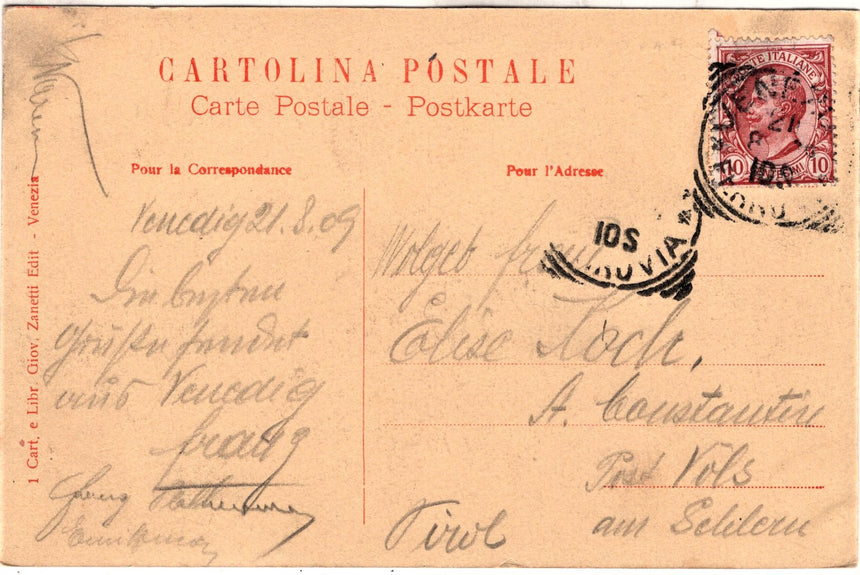 CARTOLINA POSTALE
Carte Postale - Postkarte
Pour la Correspondance
Pour l'Adresse
1 Cart, e Libr Giov, Zanetti Edit - Venezia
POSTE ITALIANE
10 CENTESIMI 10
21
8
10S
10S
Venedig 21.8.09
Die besten
Grüße sendet
aus Venedig
Franz
Wolgeb
Elise Koch,
A. Constantin
Post Vols
am Schlern
Tirol